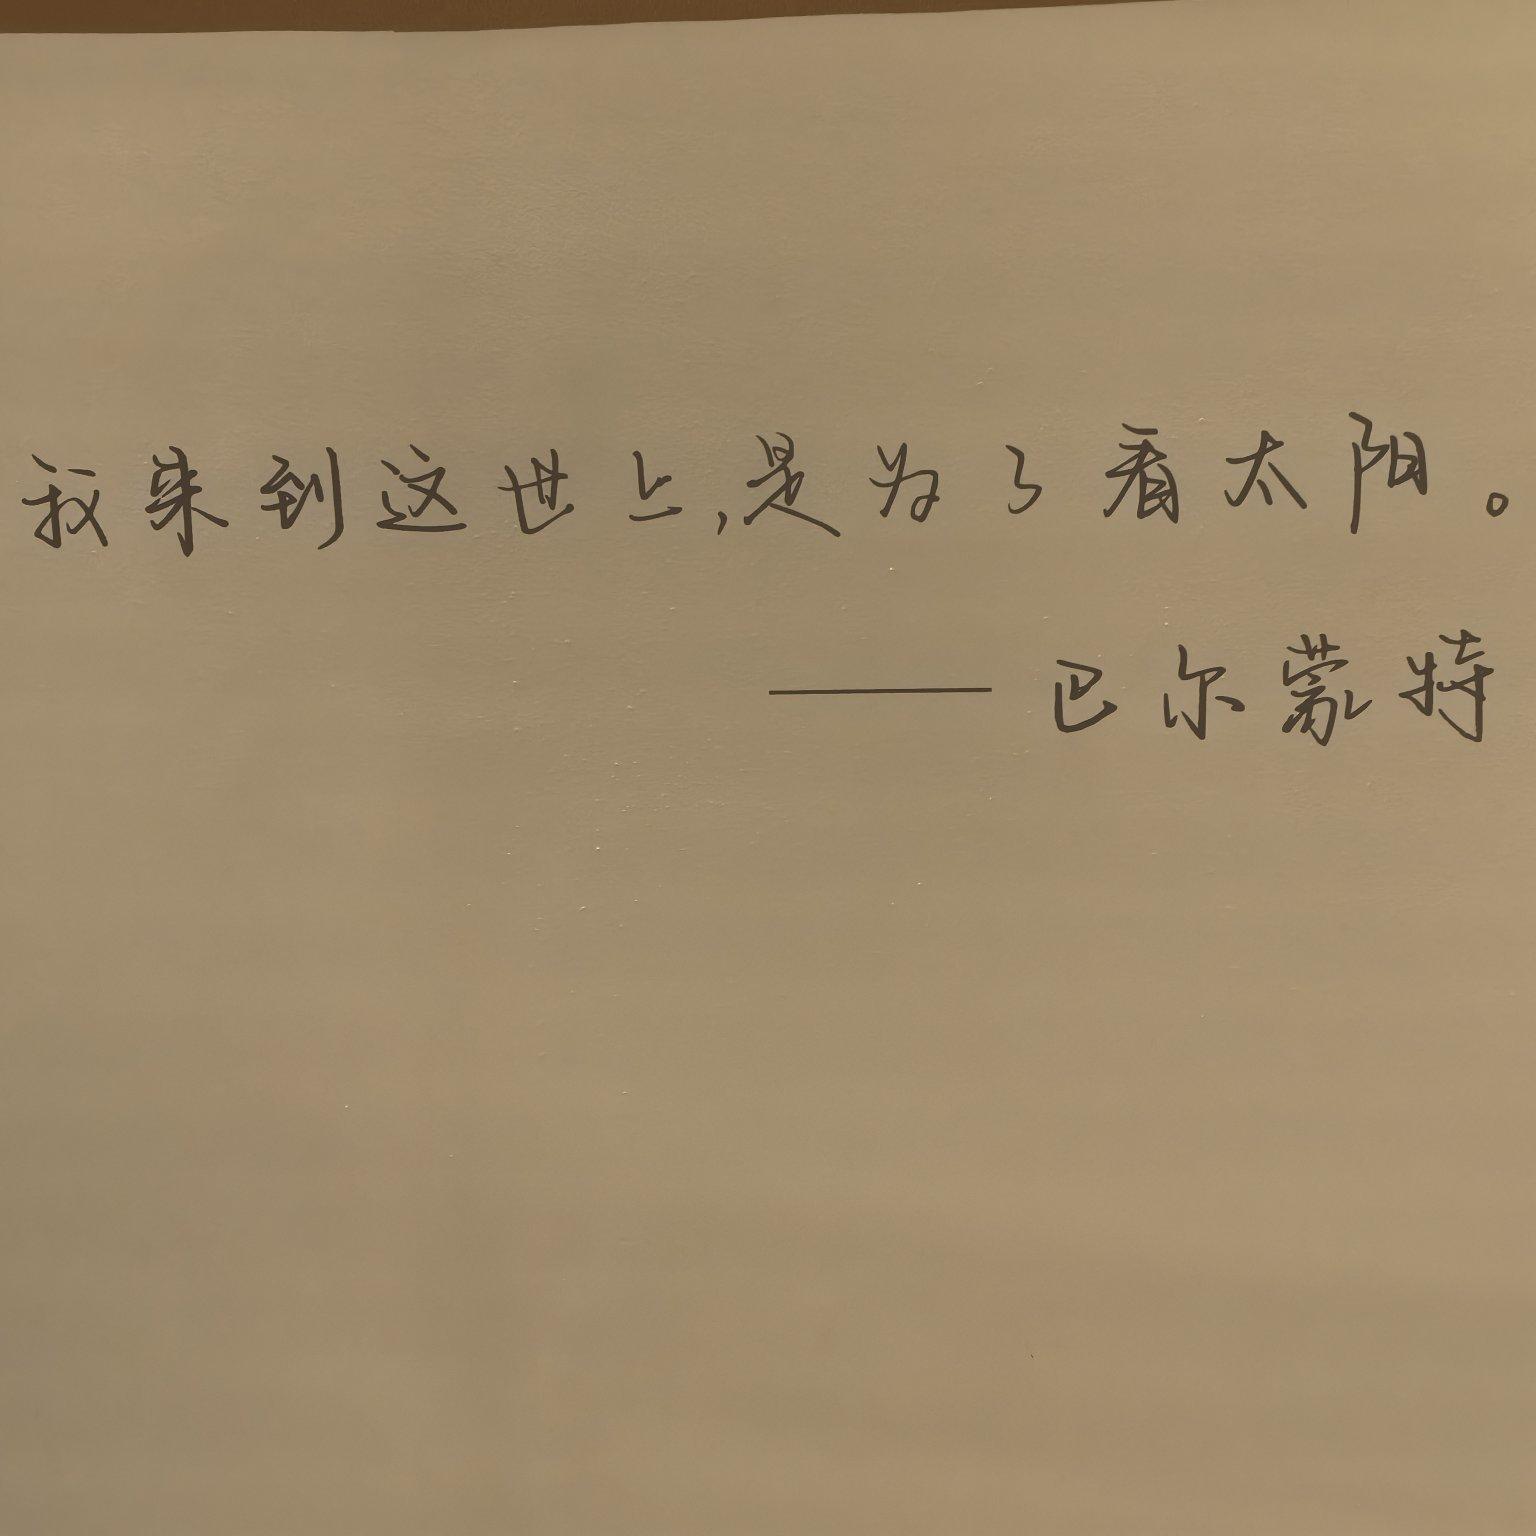 我来到这世上,是为了看太阳。
——巴尔蒙特